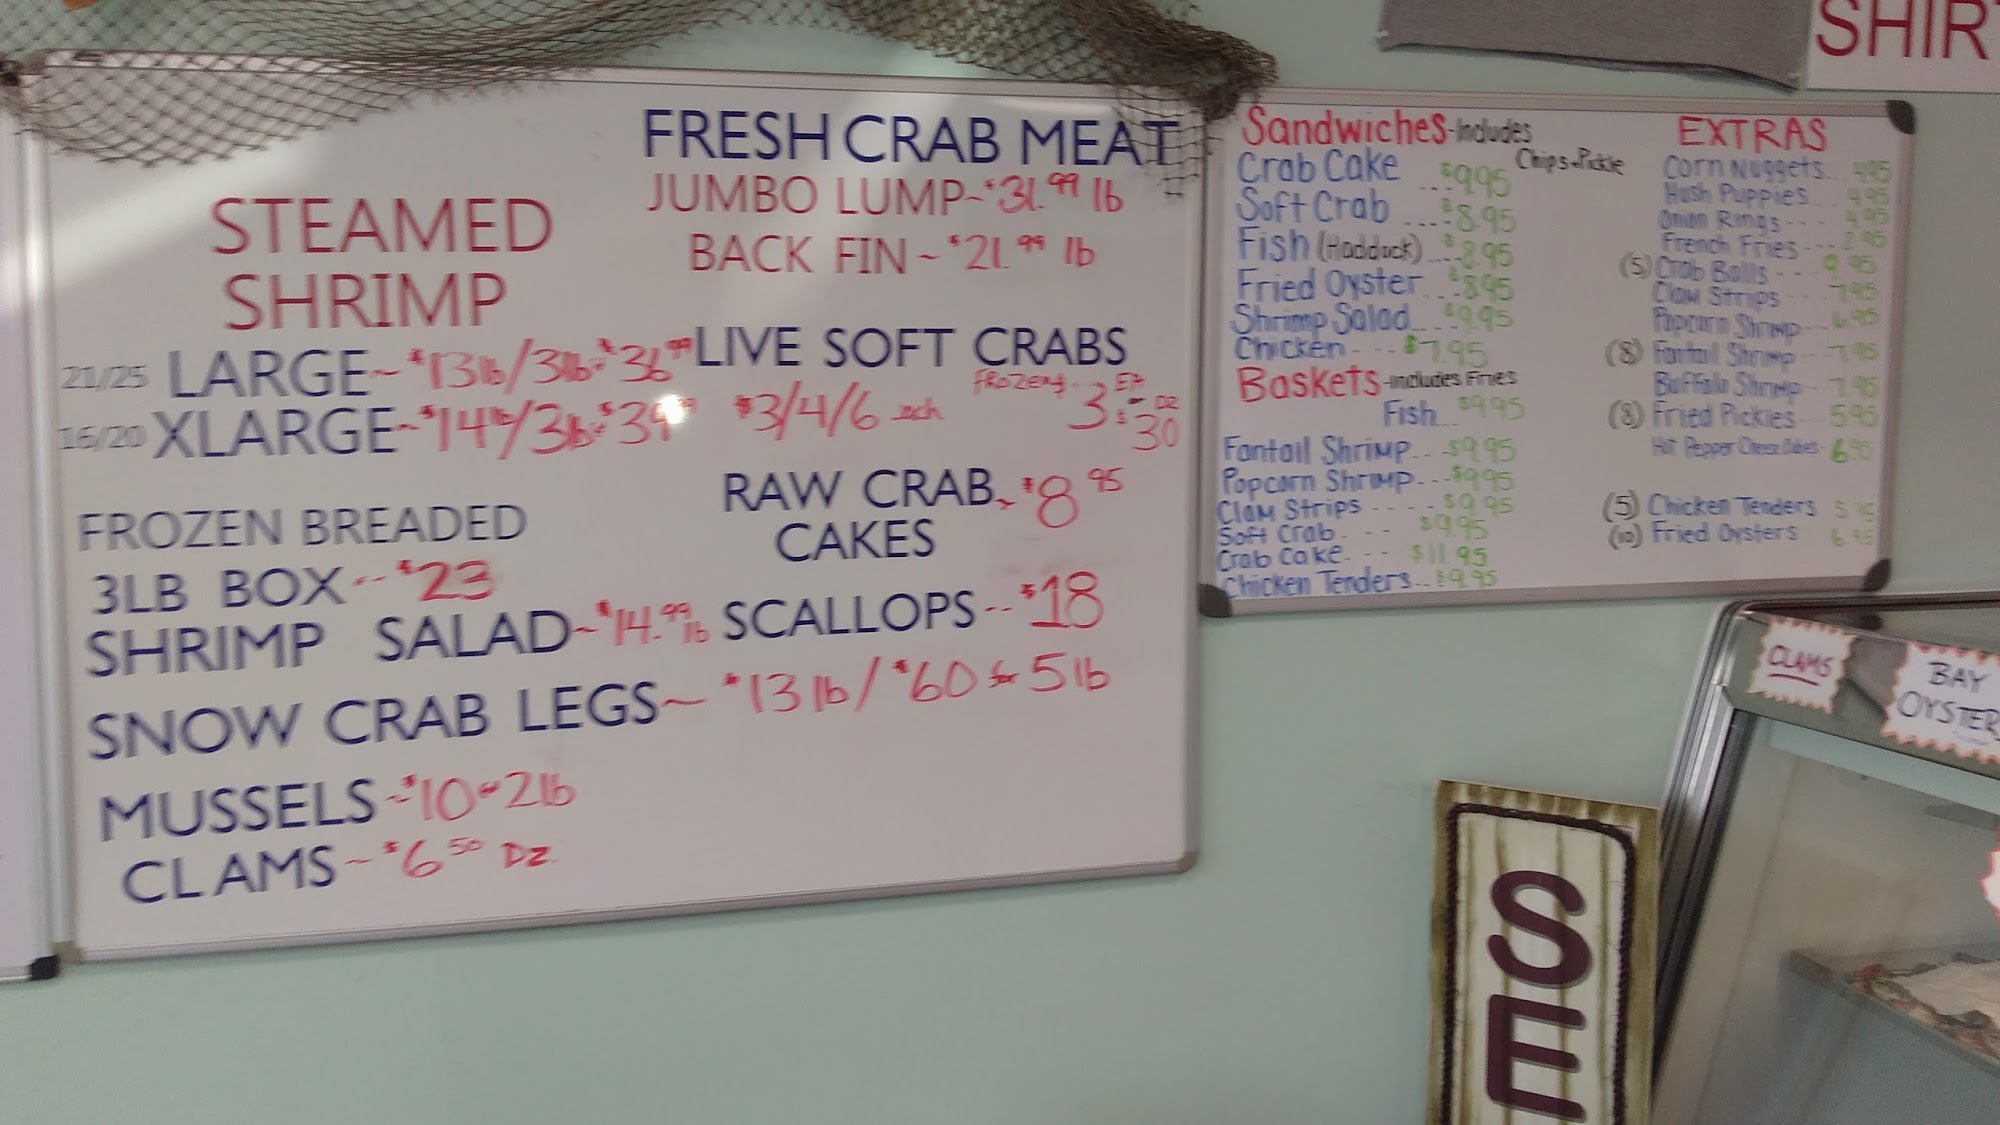 STEAMED
SHRIMP
21/25 LARGE~$13lb/3lb-$36.99
16/20 XLARGE~$14lb/3lb-$39.99
FROZEN BREADED
3LB BOX--$23
SHRIMP SALAD~$14.99 lb
SNOW CRAB LEGS~$13lb/$60 for 5lb
MUSSELS~$10 2lb
CLAMS~$6.50 DZ.
FRESH CRAB MEAT
JUMBO LUMP~$31.99 lb
BACK FIN~$21.99 lb
LIVE SOFT CRABS
$3/4/6 each
FROZEN 3 EA
DZ 30
RAW CRAB~$8.95
CAKES
SCALLOPS--$18
Sandwiches-Includes
Chips+Pickle
Crab Cake ...$9.95
Soft Crab ....$8.95
Fish (Hadduck)...$8.95
Fried Oyster...$8.95
Shrimp Salad...$9.95
Chicken---$7.95
Baskets-includes Fries
Fish...$9.95
Fantail Shrimp...$9.95
Popcorn Shrimp...$9.95
Clam Strips----$9.95
Soft Crab---$9.95
Crab Cake---$11.95
Chicken Tenders..$9.95
EXTRAS
Corn Nuggets...4.95
Hush Puppies...4.95
Onion Rings---4.95
French Fries---2.95
(5) Crab Balls---9.95
Clam Strips---7.95
Popcorn Shrimp--6.95
(8) Fantail Shrimp--7.95
Buffalo Shrimp--7.95
(8) Fried Pickles--5.95
Hot Pepper Cheese Cubes-6.95
(5) Chicken Tenders 5.95
(10) Fried Oysters 6.95
SHIRT
CLAMS
BAY
OYSTERS
SE